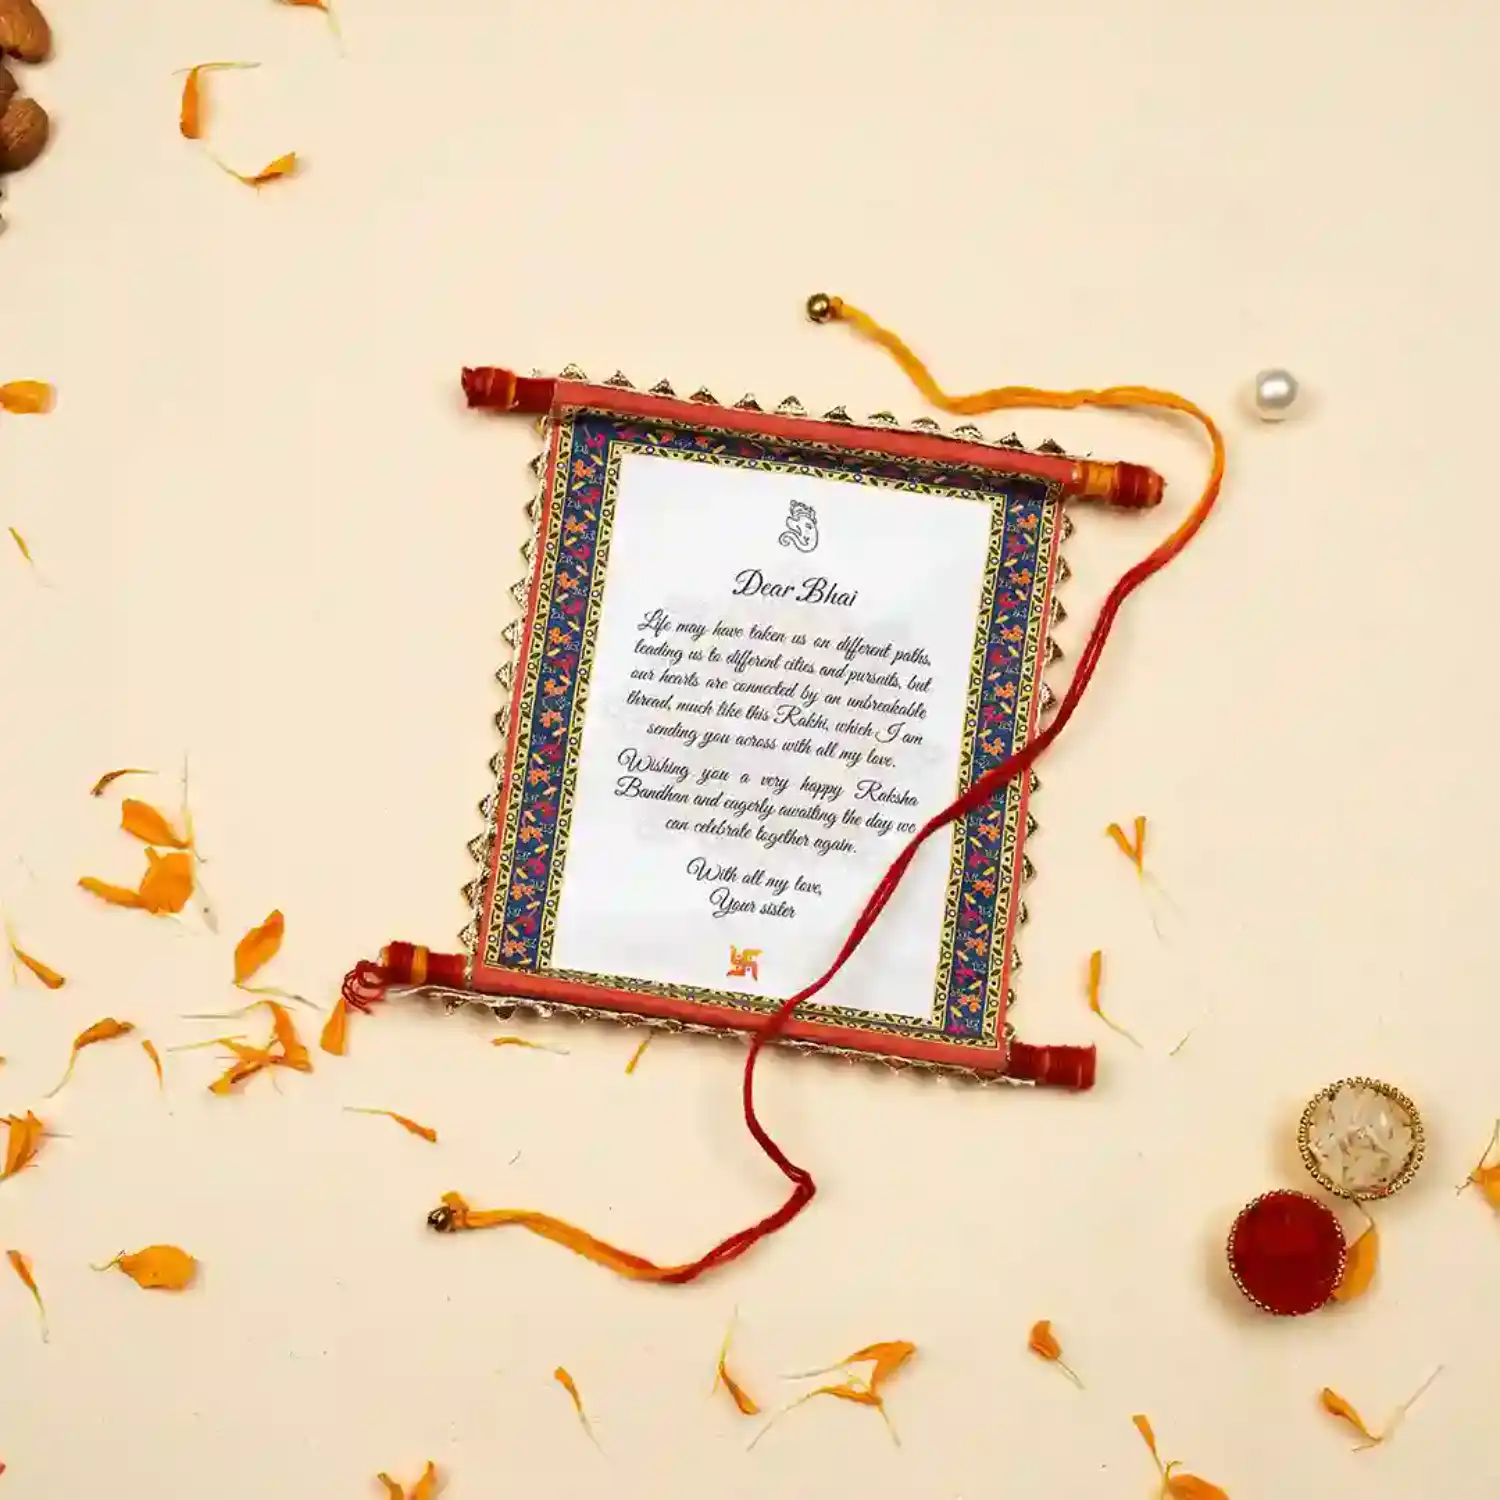 Dear Bhai
Life may have taken us on different paths,
leading us to different cities and pursuits, but
our hearts are connected by an unbreakable
thread, much like this Rakhi, which I am
sending you across with all my love.
Wishing you a very happy Raksha
Bandhan and eagerly awaiting the day we
can celebrate together again.
With all my love,
Your sister